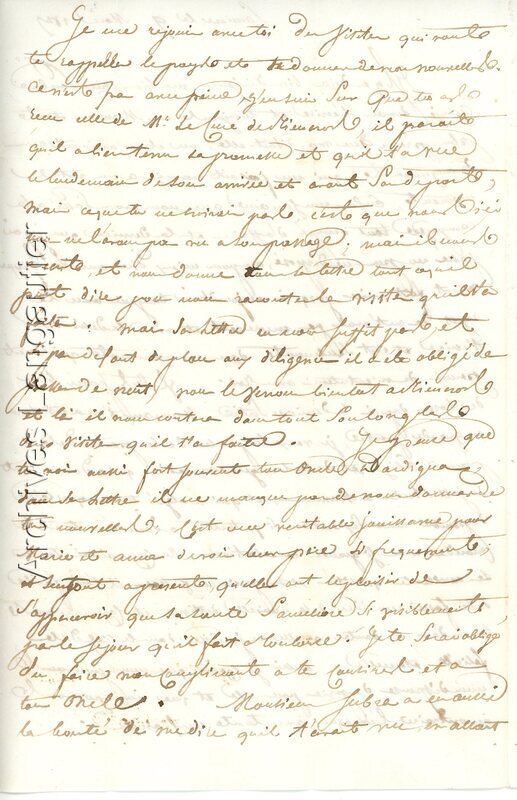 Je me rejouie avec toi des visites qui vont
te rappeller le pays et te donner de nos nouvelles.
ce n'est pas sans peine que tu as
recu celle de Mr. Le Curé de il parait
qu'il a bien tenu sa promesse et qu'il t'a vue
le lendemain de son arrivée et avant son depart,
mais ce que tu ne croirais pas c'est que nous ici
ne l'avons pas vu a son passage; mais il nous
et nous donne dans sa lettre tout ce qu'il
peut dire pour nous raconter la visite qu'il t'a
faite. mais sa lettre ne nous suffit pas et
par defaut de place aux diligences il a été obligé de
de nuit, nous le verrons bientot a
et là il nous contera dans tout son long les
visites qu'il t'a faites. Je pense que
tu vois aussi fort souvent ton oncle Dardigna,
dans sa lettre il ne manque pas de nous donner de
tes nouvelles. C'est une veritable jouissance pour
Marie et anna de voir leur père si frequemment,
et surtout apresent, qu'elles ont le plaisir de
s'appercevoir que sa santé s'ameliore si visiblement
par le séjour qu'il fait a toulouse. Je te serai obligé
de faire mes compliments a tes cousines et a
ton oncle. Monsieur a eu aussi
la bonté de me dire qu'il t'avait vue, en allant
Archives Lengautier